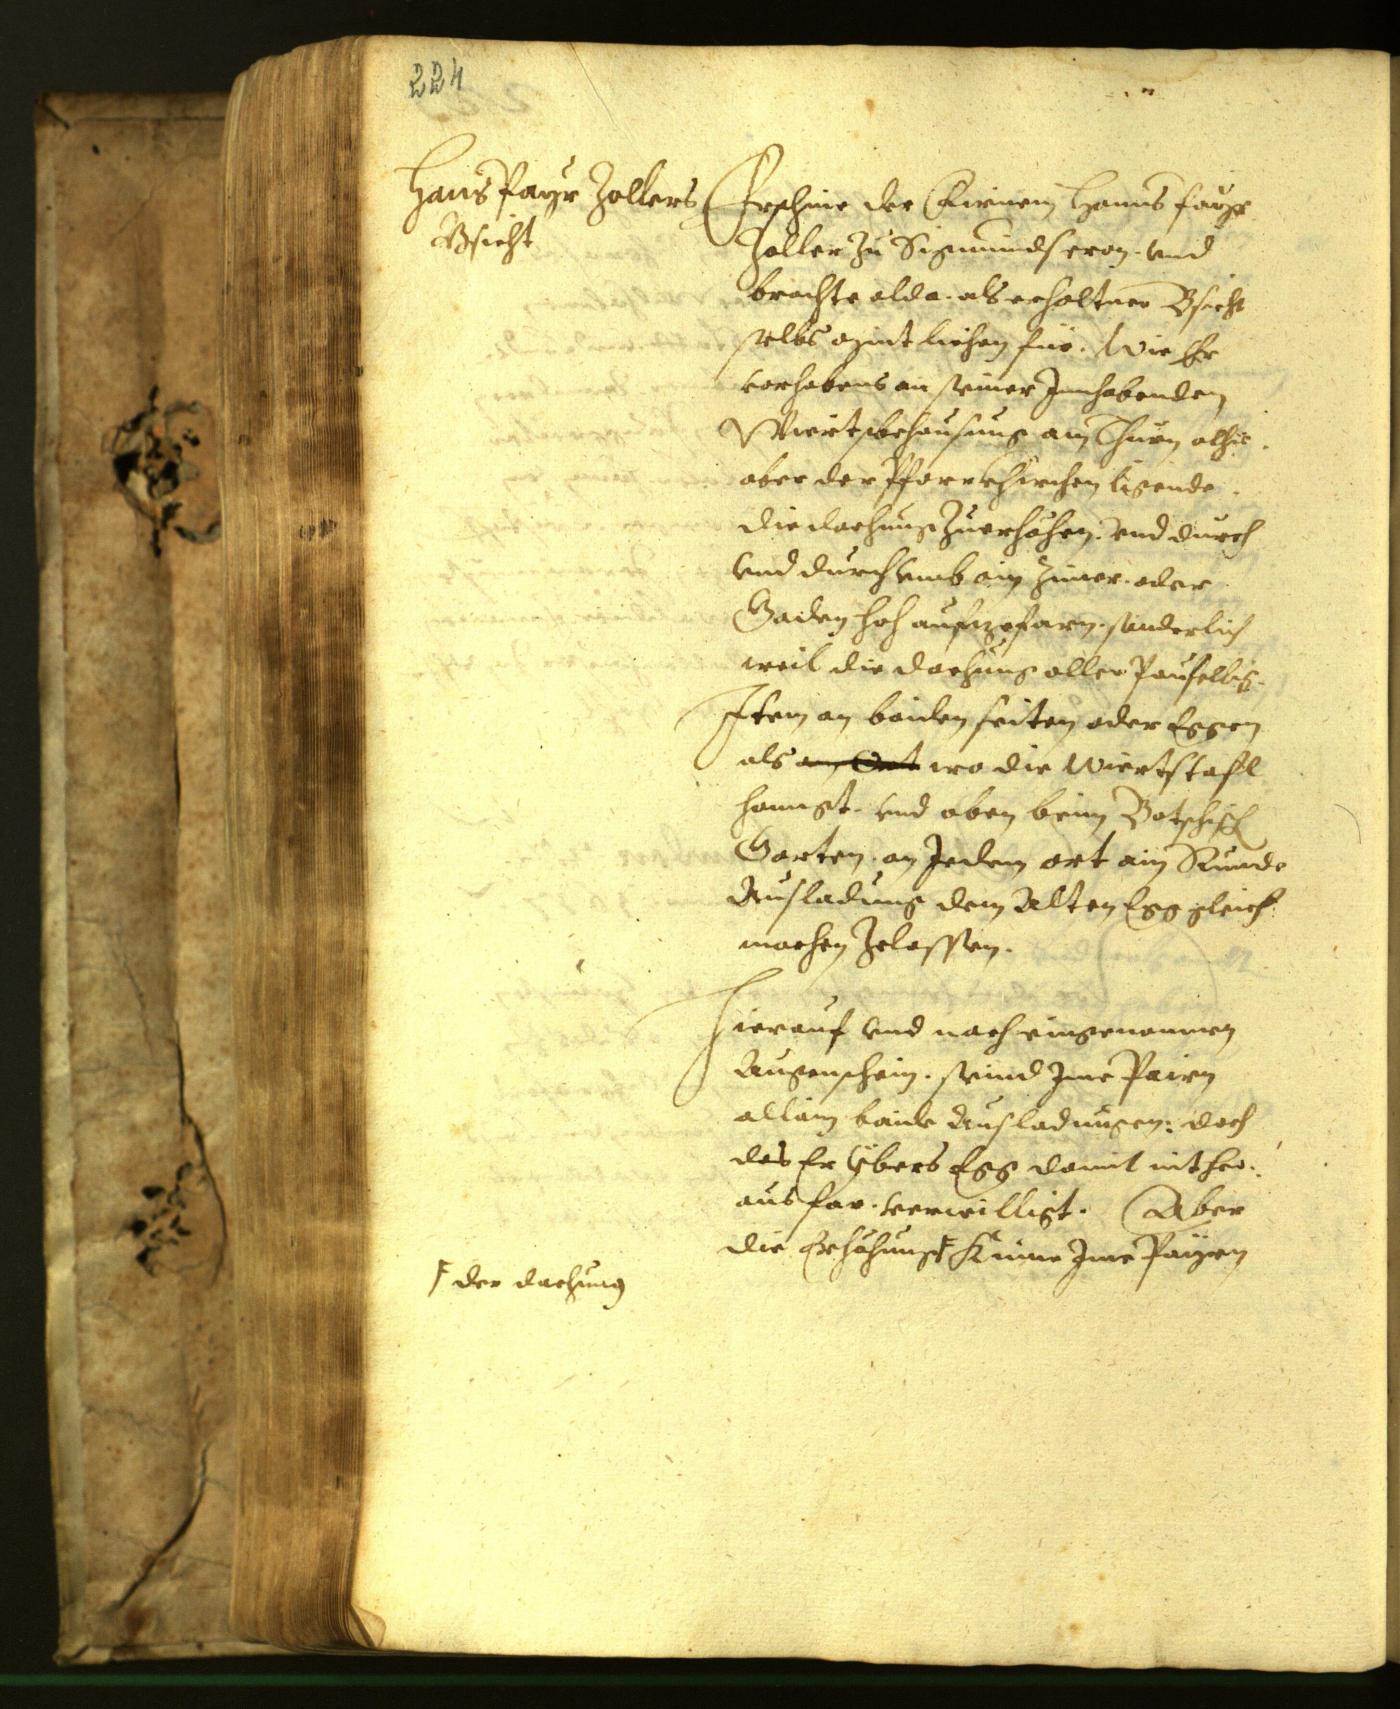 224
Hans Payr Zollers
Bsicht
Erschine der Fürnem Hanns Payr
Zoller zu Sigmundscron. vnd
brachte alda. als erhaltner Bsicht
selbs mintlichen für. Wie Er
vorhabens an seiner Innhabenden
Wiertsbehausung am Thurn alhie.
ober der Pfarrkhirchen ligende.
die dachung zuerhöhen. vnd durch
vnd durch vmb ain Zimer. oder
Gaden hoch aufzefarn. sonderlich
weil die dachung aller Paufellig.
Item an baiden seiten oder Eggen
als am Ort wo die Wiertstafl
hanngt. vnd oben beim Botschisch
Garten. an Jedem ort ain Runde
Ausladung dem Alten Egg gleich
machen Zelassen.
Hierauf vnd nach eingenommen
Augenschein. seind Ime Pairn
allain baide Ausladungen: doch
das Er Ybers Egg damit nit her-
aus far. verwilligt. Aber
die Erhöhung Ⱶ Künne Ime Payrn
Ⱶ der dachung